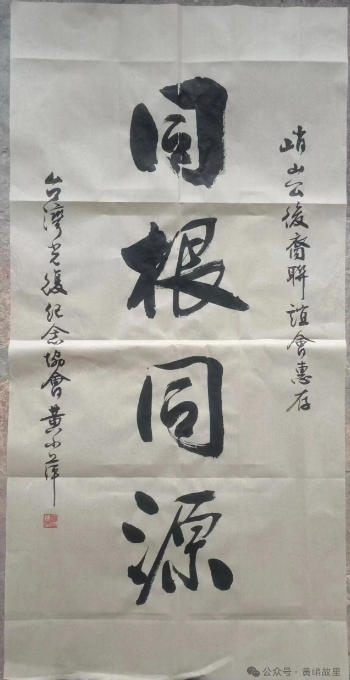 峭山公後裔聯誼會惠存
同根同源
台灣光復紀念協會黃小萍
公众号·黄峭故里